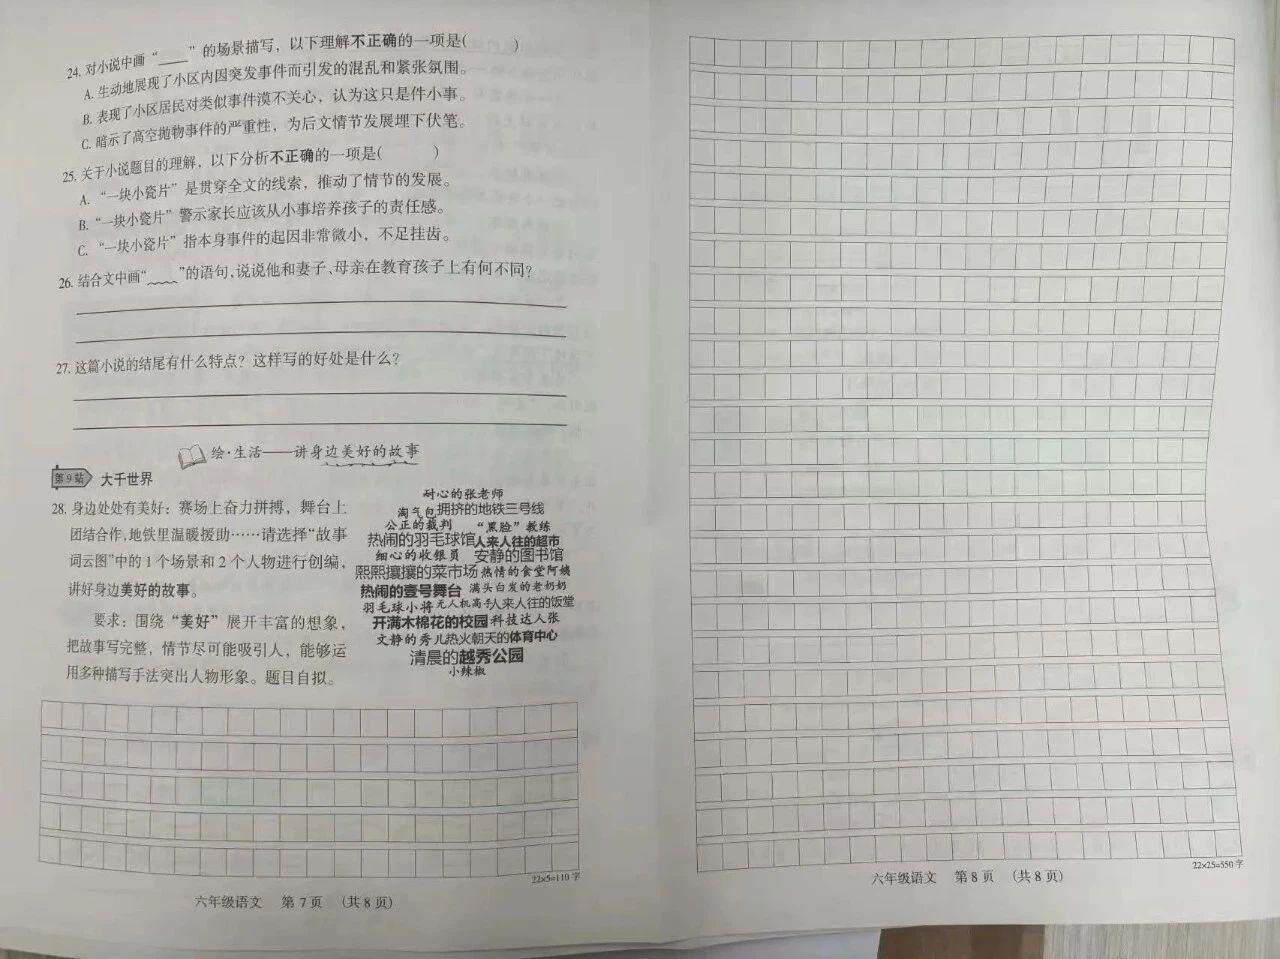 24. 对小说中画“____”的场景描写，以下理解不正确的一项是(　　)
A. 生动地展现了小区内因突发事件而引发的混乱和紧张氛围。
B. 表现了小区居民对类似事件漠不关心，认为这只是件小事。
C. 暗示了高空抛物事件的严重性，为后文情节发展埋下伏笔。
25. 关于小说题目的理解，以下分析不正确的一项是(　　)
A. “一块小瓷片”是贯穿全文的线索，推动了情节的发展。
B.“一块小瓷片”警示家长应该从小事培养孩子的责任感。
C. “一块小瓷片”指本身事件的起因非常微小，不足挂齿。
26. 结合文中画“﹏﹏”的语句,说说他和妻子、母亲在教育孩子上有何不同?
27. 这篇小说的结尾有什么特点？这样写的好处是什么？
绘·生活——讲身边美好的故事
第9站 大千世界
28. 身边处处有美好：赛场上奋力拼搏，舞台上
团结合作,地铁里温暖援助……请选择“故事
词云图”中的 1 个场景和 2 个人物进行创编，
讲好身边美好的故事。
要求：围绕“美好”展开丰富的想象，
把故事写完整，情节尽可能吸引人，能够运
用多种描写手法突出人物形象。题目自拟。
耐心的张老师
淘气包 拥挤的地铁三号线
公正的裁判 “黑脸”教练
热闹的羽毛球馆 人来人往的超市
细心的收银员 安静的图书馆
熙熙攘攘的菜市场 热情的食堂阿姨
热闹的壹号舞台 满头白发的老奶奶
羽毛球小将 无人机高手 人来人往的饭堂
开满木棉花的校园 科技达人张
文静的秀儿 热火朝天的体育中心
清晨的越秀公园
小辣椒
22×5=110 字
六年级语文 第 7 页 （共 8 页）
22×25=550 字
六年级语文 第 8 页 （共 8 页）